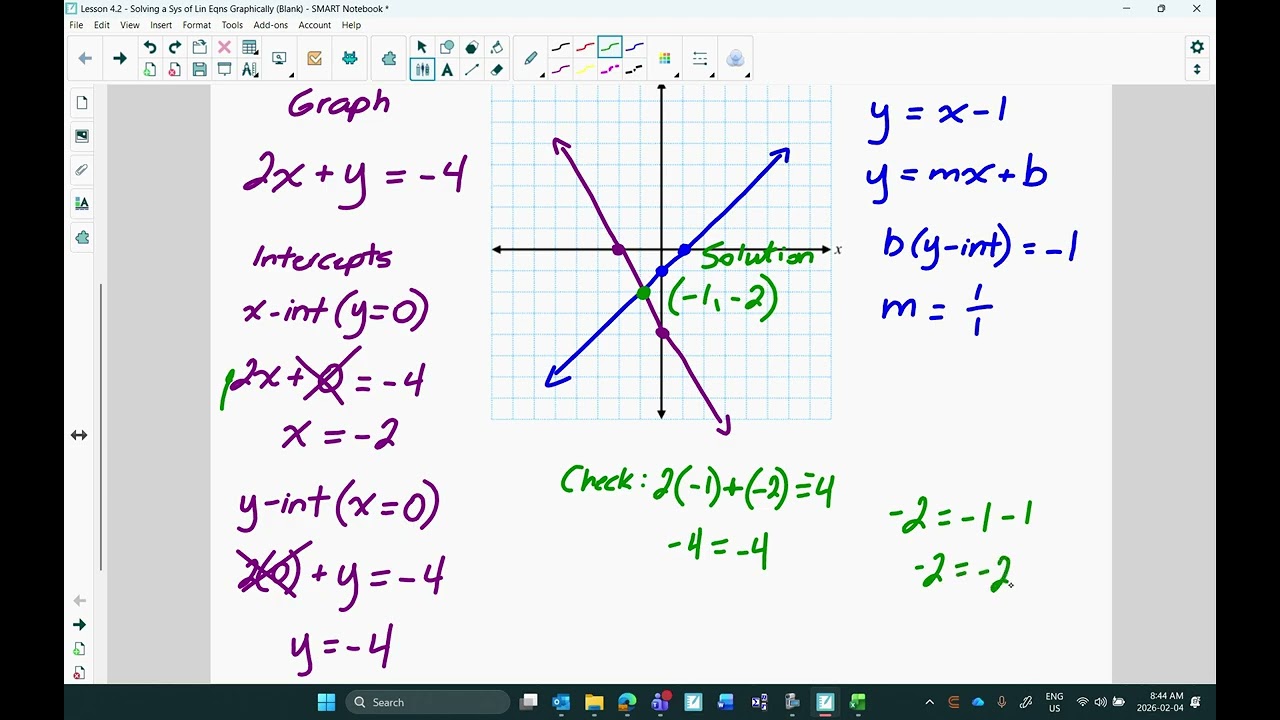 Lesson 4.2 - Solving a Sys of Lin Eqns Graphically (Blank) - SMART Notebook *
File Edit View Insert Format Tools Add-ons Account Help
Graph
2x + y = -4
Intercepts
x-int (y=0)
2x + 0 = -4
x = -2
y-int (x=0)
2(0) + y = -4
y = -4
x
Solution
(-1, -2)
Check: 2(-1)+(-2) = -4
-4 = -4
y = x - 1
y = mx + b
b (y-int) = -1
m = 1/1
-2 = -1 - 1
-2 = -2
Search
ENG
US
8:44 AM
2026-02-04